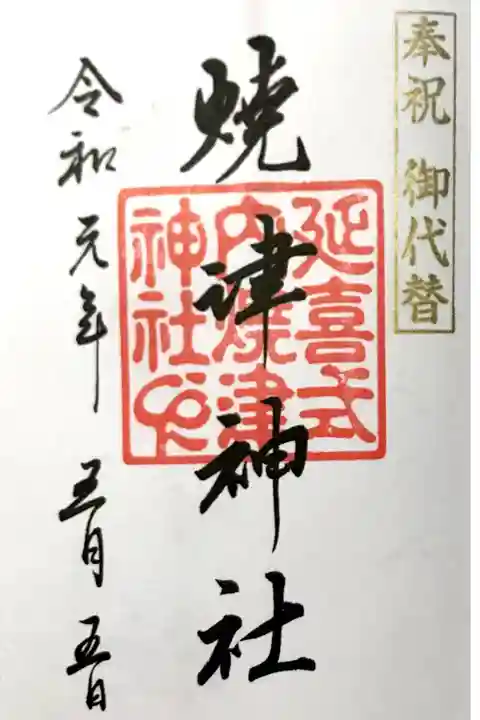 奉祝 御代替
焼津神社
延喜式
内焼津
神社之印
令和元年 五月五日